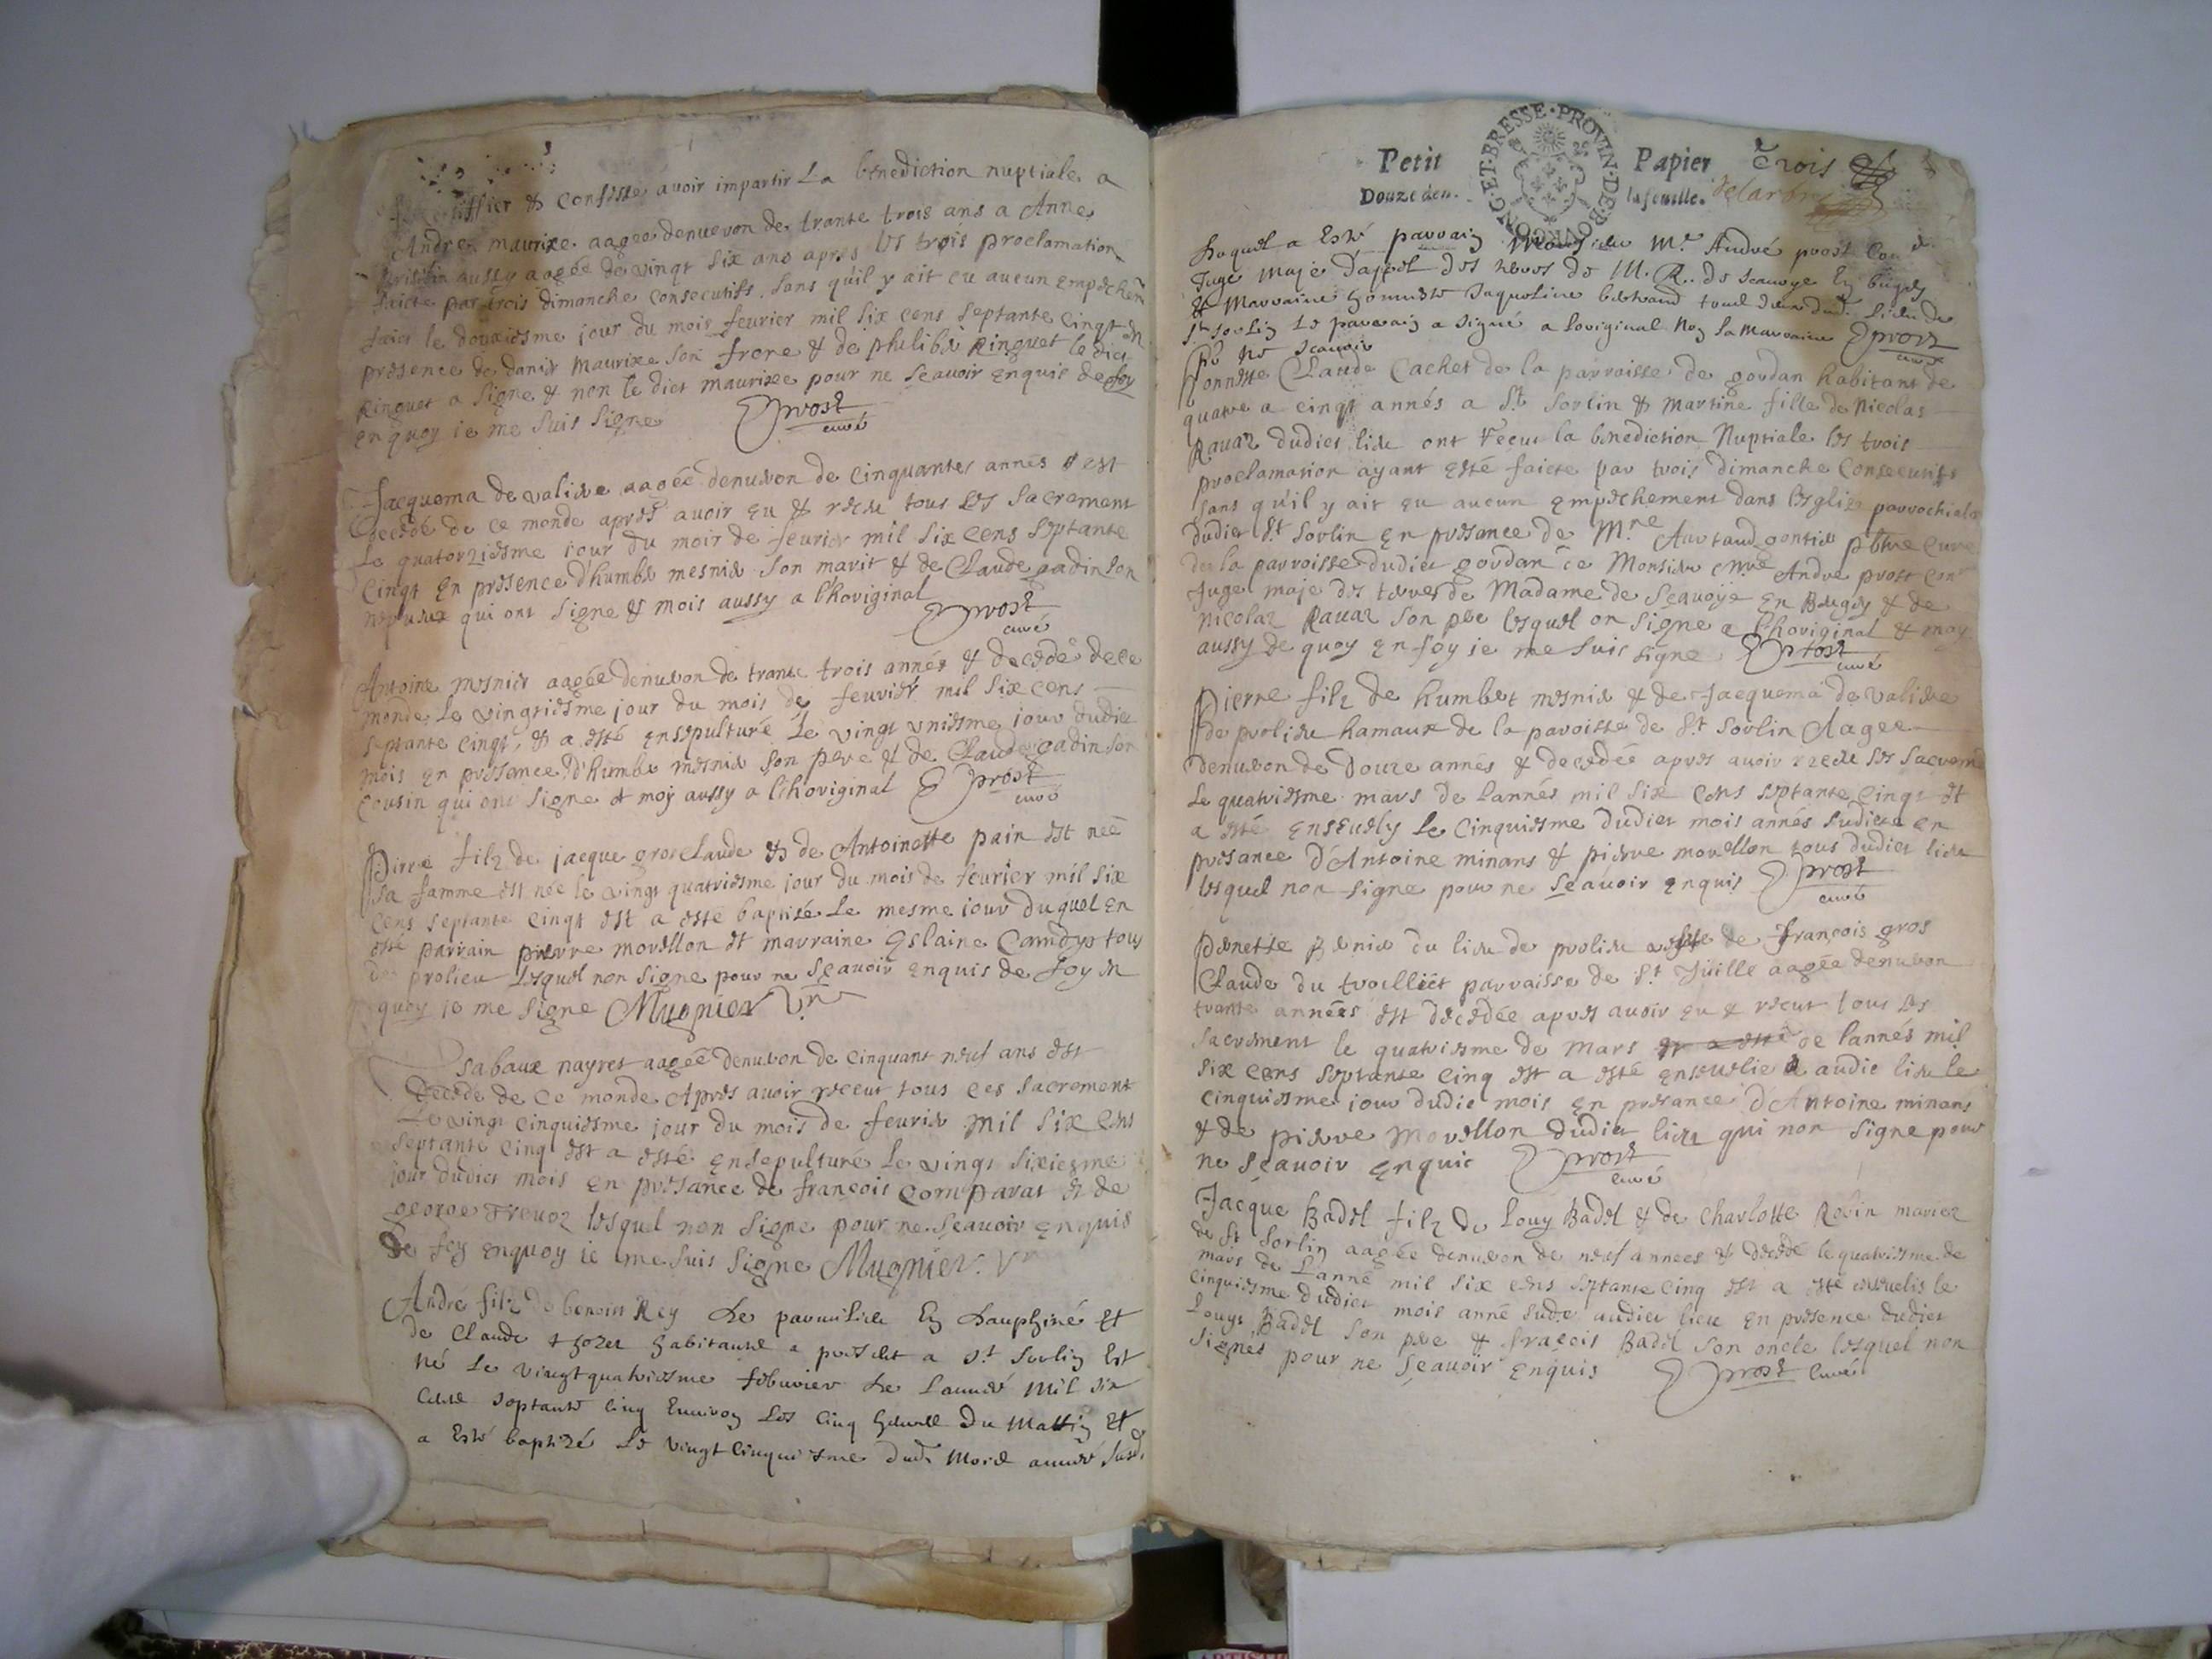 certiffier & confesse avoir impartir La benediction nuptiale a
Andre maurixe aagee denuevon de trante trois ans a Anne
aussy aagée de vingt six ans apres les trois proclamation
faicte par trois dimanche consecutifs sans qu'il y ait eu aucun empechem
faict le douxiesme jour du mois feurier mil six cens septante cingt en
presence de danis maurixe son frere & de philibe Ringuet le dict
Ringuet a signe & non le dict maurixe pour ne scavoir enquis de foy
en quoy ie me suis signe Prost
curé
Jacquema de valiere aagée denuiron de cinquantes annés est
decedé de ce monde apres avoir eu & receu tous les sacrement
Le quatorziesme iour du moir de feurier mil six cens septante
cingt en presence d'humbe mesnier son marit & de Claude gadin son
nepueux qui ont signe & mois aussy a l'horiginal Prost
curé
Antoine mesnier aagée denuiron de trante trois annés & decedé de ce
monde Le vingtiesme jour du mois de feuvier mil six cens
septante cingt, & a esté ensepulturé Le vingt vniesme jour dudic
mois en presence d'humbe mesnier son pere & de Claude gadin son
cousin qui ont signe et moy aussy a l'horiginal Prost
curé
Pirre filz de jacque gros Claude & de Antoinette pain est neé
sa famme est née le vingt quatriesme jour du mois de feurier mil six
cens septante cingt est a esté baptisé Le mesme iour duquel en
esté parrain pierre morellon et marraine Eslaine Camdys tous
de prolieu Lesquel non signe pour ne sçauoir enquis de foy en
quoy ie me signe Mugnier Vre
Isabaux nayret aagée denuiron de cinquant neuf ans est
decede de ce monde Apres auoir receut tous ces sacrement
Le vingt cinquiesme jour du mois de feurier mil six cens
septante cinq est a esté ensepulturé Le vingt sixiesme
jour dudict mois en presance de françois comparat & de
george Freuoz lesquel non signe pour ne sçeauoir enquis
de foy enquoy ie me suis signe Mugnier Vre
André filz de benoist Rey de parmilieu En dauphiné et
de Claude habitants a present a St Sorlin Est
né Le vingt quatriesme febuvier de Lanné mil six
cens septante cinq Environ Les cinq heures du Mattin Et
a Esté baptizé Le vingt cinquiesme dud. Mois année susd.
Petit Papier Trois
Douze den. la feuille. delarbre
BOVRGONG·ET·BRESSE·PROVIN·DE·
Duquel a Esté parrain Monsieur Mre André prost Con.er
Juge maje d'appel des terres de M. R. de scavoye En bugey
& Marraine honneste Jaqueline bertrand tous deux dud. Lieu de
St sorlin Le parrain a signé a Loriginal Non La Marraine Prost
pr ne scauoir curé
Honneste Claude Cachet de la parroisse de gourdan habitant de
quatre a cinqt annés a St. Sorlin & martine fille de Nicolas
Rauaz dudict lieu ont receu la benediction Nuptiale les trois
proclamation ayant esté faicte par trois dimanche Consecutifs
sans qu'il y ait eu aucun empechement dans l'esglize parrochiale
dudict St Sorlin en presance de Mre Aartaud gontier pbtre cure
de la parroisse dudict gourdan ce Monsieur Mre André prost Conr
Juge maje des terres de Madame de Sçauoye en Bugey & de
nicolaz Rauaz son pere lesquel on signe a l'horiginal & moy
aussy de quoy en foy ie me suis signe Prost
curé
Pierre filz de humbert mesnier & de Jacquema de valiere
de prolieu hamaux de la paroisse de St Sorlin Aagee
denuiron de douze annés & decedée apres auoir receu les sacrem
Le quatriesme mars de Lannés mil six cens septante cingt et
a esté enseuely Le cinquiesme dudict mois annés sudicte en
presance d'Antoine minans & pierre morellon tous dudict lieu
lesquel non signe pour ne sçeauoir enquis Prost
curé
Penette du lieu de prolieu de François gros
Claude du troilliet parraisse de St Juille aagée denuiron
trante annees est decedée apres auoir eu & receut tous les
sacrement le quatriesme de mars et a esté de lannés mil
six cens septante cinq est a esté enseuelie audic lieu le
cinquiesme iour dudic mois en presance d'Antoine minans
& de pierre morellon dudict lieu qui non signe pour
ne sçeauoir enquis Prost
curé
Jacque Badel filz de Louy Badel & de Charlotte Robin mariez
de St Sorlin aagée denuiron de neuf annees & decedé le quatriesme de
mars de Lanné mil six cens septante cinq est a esté enseuelis le
cinquiesme dudict mois année sude audict lieu en presence dudict
Louys Badel son pere & fraçois Badel son oncle lesquel non
signés pour ne sçeauoir enquis Prost Curé